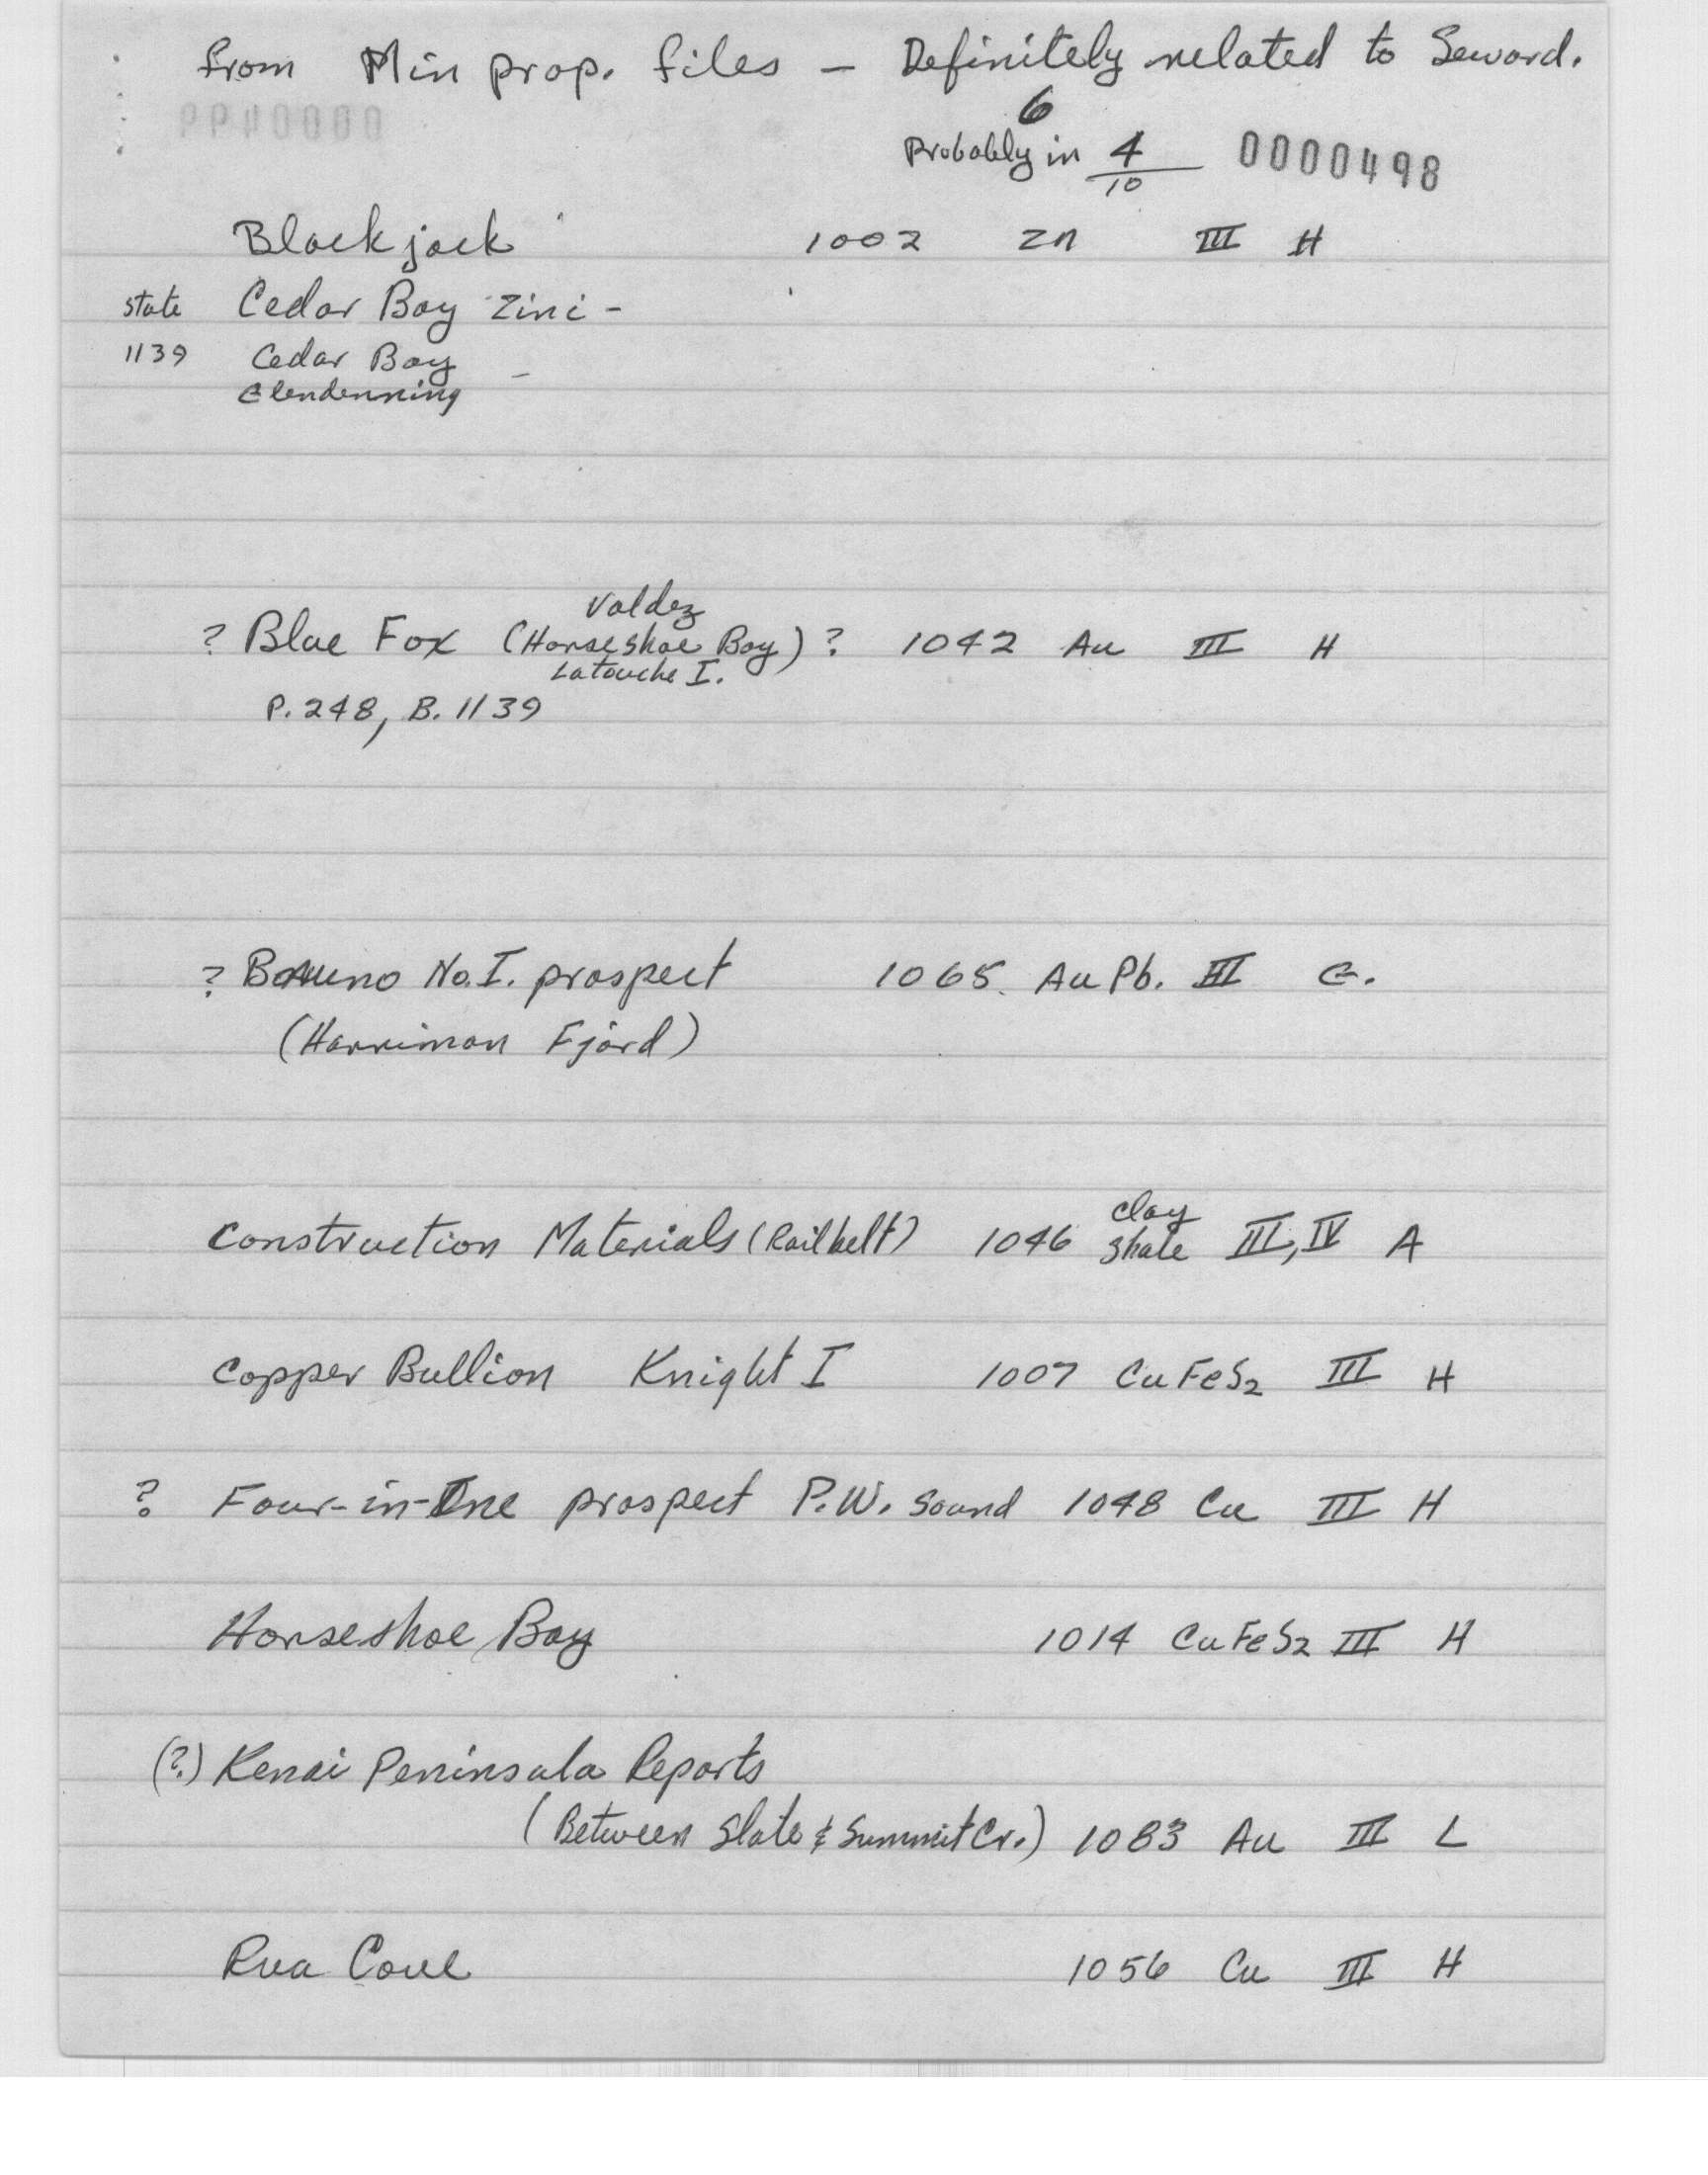 from Min prop. files – Definitely related to Seward.
6
Probably in 4 0000498
10
Blackjack 1002 Zn III H
state Cedar Bay Zinc -
1139 Cedar Bay -
Clendenning
Valdez
? Blue Fox (Horseshoe Bay) ? 1042 Au III H
Latouche I.
P. 248, B. 1139
? No. I. prospect 1065 Au Pb. III G.
(Harriman Fjord)
clay
Construction Materials (Railbelt) 1046 shale III, IV A
Copper Bullion Knight I 1007 CuFeS2 III H
? Four-in-One prospect P.W. Sound 1048 Cu III H
Horseshoe Bay 1014 CuFeS2 III H
(?) Kenai Peninsula Reports
(Between Slate & Summit Cr.) 1083 Au III L
Rua Cove 1056 Cu III H